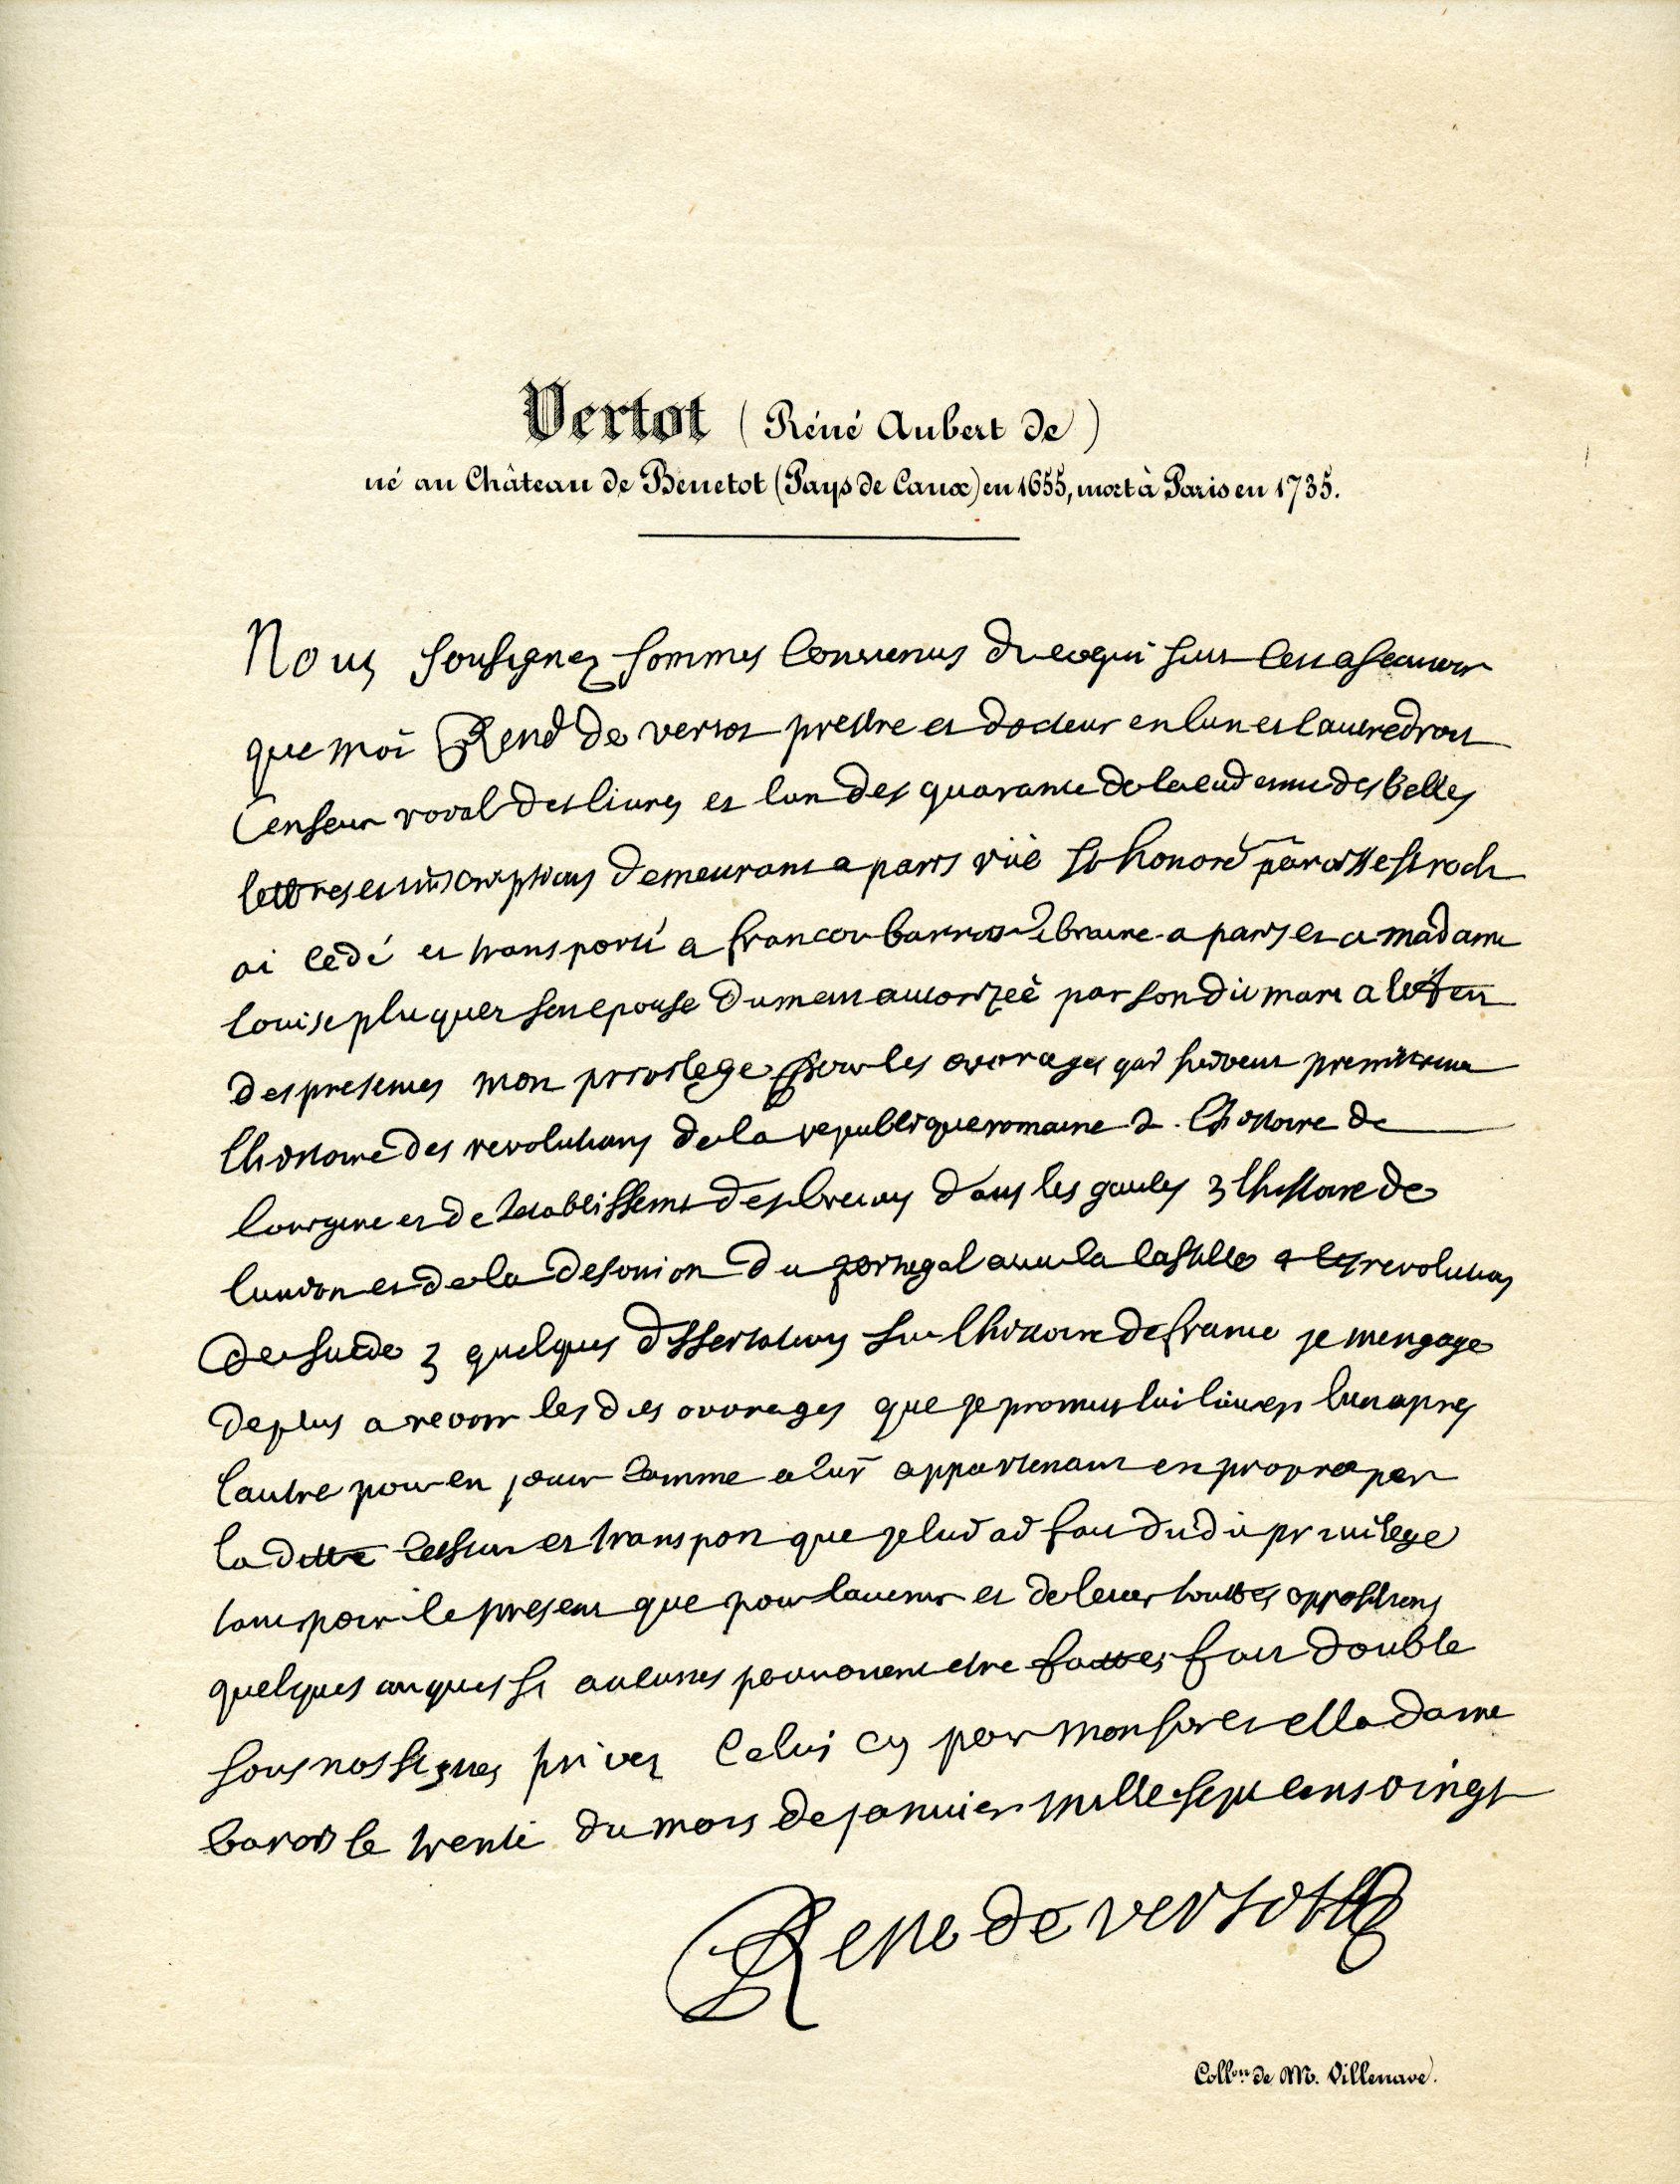 Vertot (Réné Aubert de)
né au Château de Benetot (Pays de Caux) en 1655, mort à Paris en 1735.
Nous sousignez sommes convenus de ce qui suit cest a scavoir
que moi René de vertot prestre et docteur en lun et lautre droit
Censeur roval des livres et lun des quarante de lacademie des belles
lettres et inscriptions demeurant a paris rüe st honoré paroisse st roch
ai cedé et transporté a francois barrois libraire a paris et a madame
louise pluquet son epouse dument autorizeè par son dit mari a leffett
des presentes mon privilege pour les ouvrages qui suivent premierement
lhistoire des revolutions de la republique romaine 2 lhistoire de
lorigine et de letablissemt des bretons dans les gaules 3 lhistoire de
lunion et de la desunion du portugal avec la castille 4 les revolutions
de suede 5 quelques dissertations sur lhistoire de france je mengage
de plus a revoir les dits ouvrages que je promets lui livrer lun apres
lautre pour en jouir comme a lui appartenant en propre par
la ditte cession et transport que je lui ai fait du dit privilege
tant pour le present que pour lavenir et de lever touttes oppositions
quelquonques si aulcunes pouroient etre faittes fait double
sous nos signes privez celui cy pour monsieur et la dame
barois le trente du mois de janvier mille sept cens vingt
Rene de vertott
Coll.on de M. Villenave.